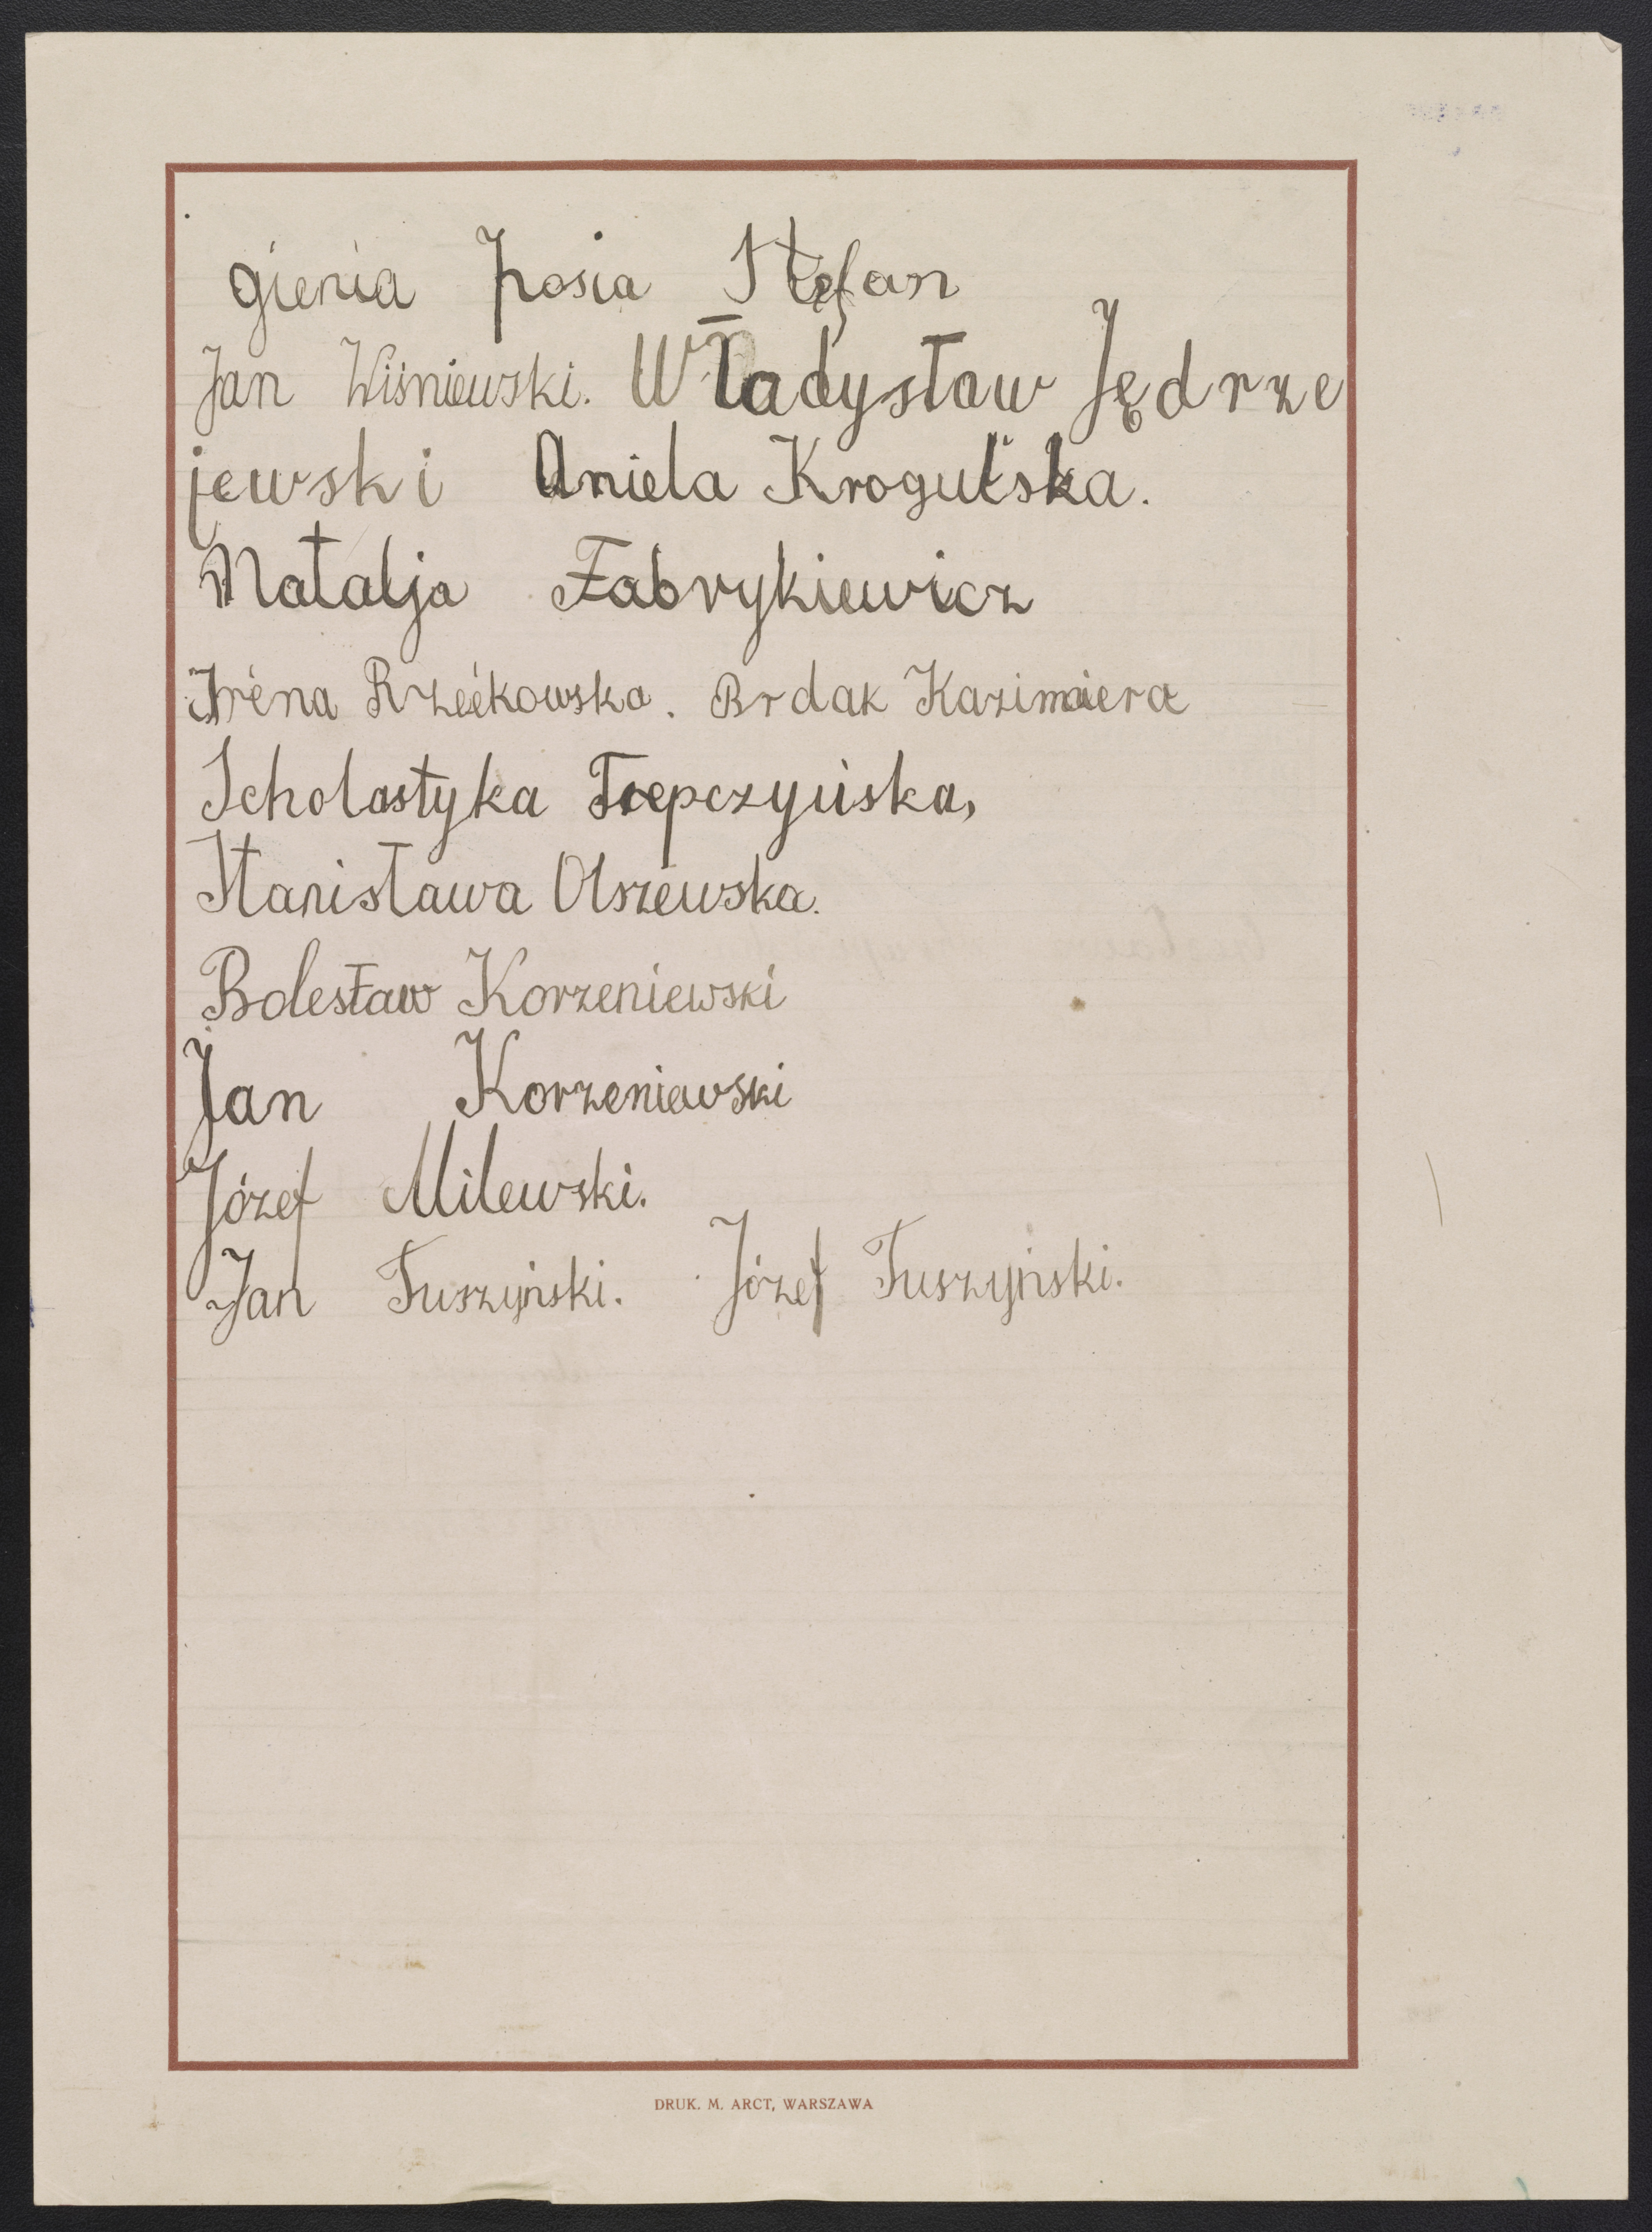 gienia Zosia Stefan
Jan Wiśniewski. Władysław Jędrze
jewski Aniela Krogulska.
Natalja Fabrykiewicz
Iréna Rzeékowska. Brdak Kazimiera
Scholastyka Trepczyńska,
Stanisława Olszewska.
Bolesław Korzeniewski
Jan Korzeniewski
Józef Milewski.
Jan Tuszyński. Józef Tuszyński.
DRUK. M. ARCT, WARSZAWA